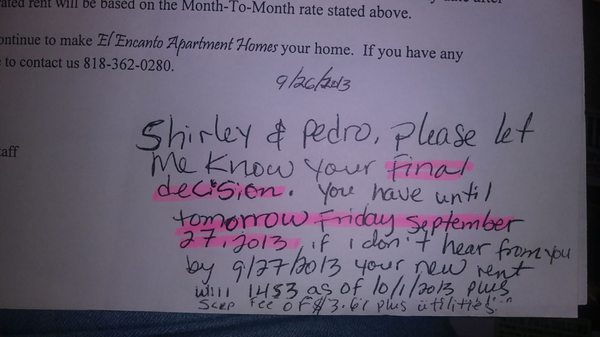 rated rent will be based on the Month-To-Month rate stated above.
ontinue to make El Encanto Apartment Homes your home. If you have any
e to contact us 818-362-0280.
9/26/2013
Shirley & Pedro, please let
me know your final
decision. You have until
tomorrow Friday September
27, 2013, if i don't hear from you
by 9/27/2013 your new rent
will 1453 as of 10/1/2013 plus
SCRP fee of $3.61 plus utilities."
aff